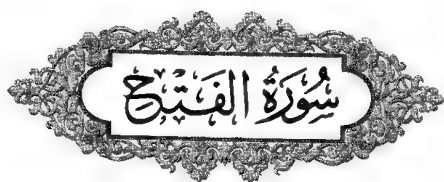 سُورَةُ الفَتْحِ